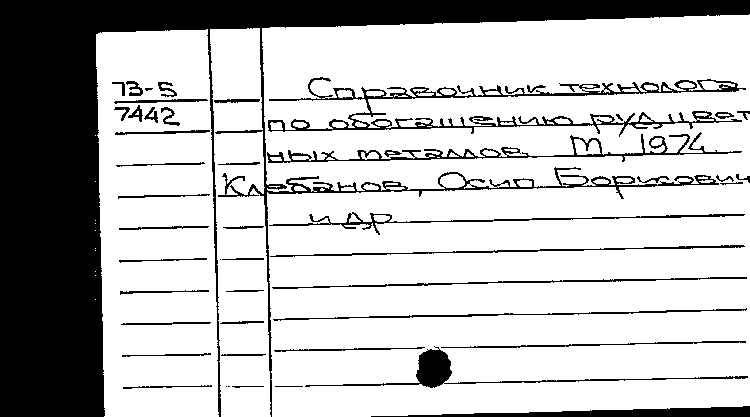 73-5 Справочник технолога
7442 по обогащению руд цвет
ных металлов. М., 1974.
Клебанов, Осип Борисович
и др